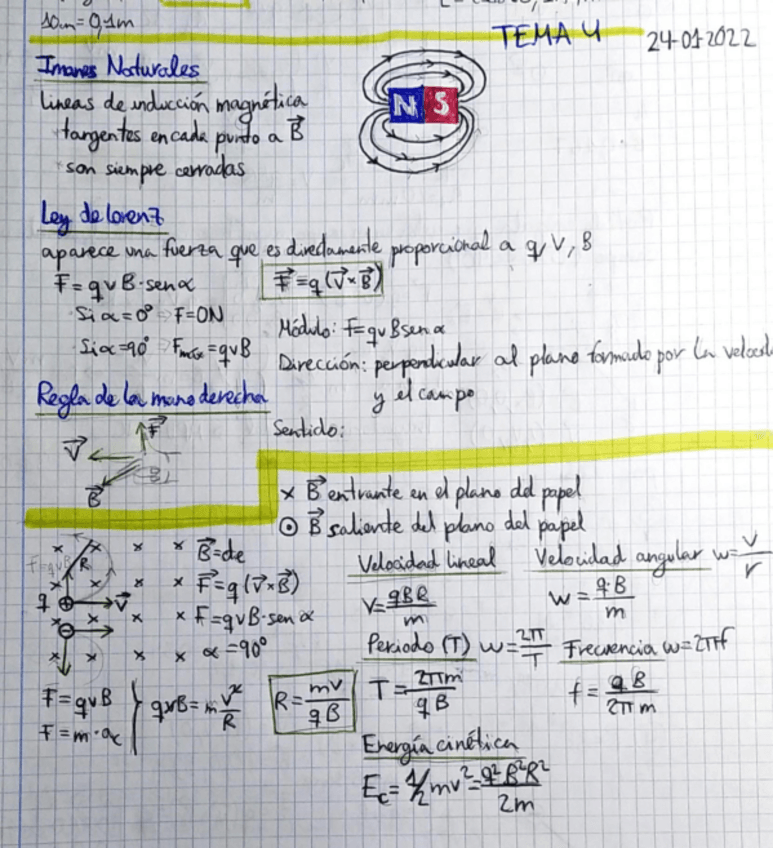 10cm = 0,1m
TEMA 4
24-01-2022
Imanes Naturales
lineas de inducción magnética
tangentes en cada punto a B⃗
son siempre cerradas
N S
Ley de lorenz
aparece una fuerza que es directamente proporcional a q, V, B
F = qvB·senα
F⃗ = q(V⃗×B⃗)
Si α=0° F=0N
Módulo: F=qvBsenα
Si α=90° Fmax=qvB
Dirección: perpendicular al plano formado por la
y el campo
Regla de la mano derecha
Sentido:
F⃗
V⃗
B⃗
× B⃗ entrante en el plano del papel
⊙ B⃗ saliente del plano del papel
B⃗=cte
F⃗=q(V⃗×B⃗)
F=qvB·sen α
α=90°
R
q ⊕ V⃗
Velocidad lineal
V=qBR/m
Velocidad angular w=V/r
w=q·B/m
Periodo (T) w=2π/T
T=2πm/qB
Frecuencia w=2πf
f=qB/2πm
F=qvB
F=m·ac
qvB=m v²/R
R=mv/qB
Energía cinética
Ec=1/2mv²=q²B²R²/2m